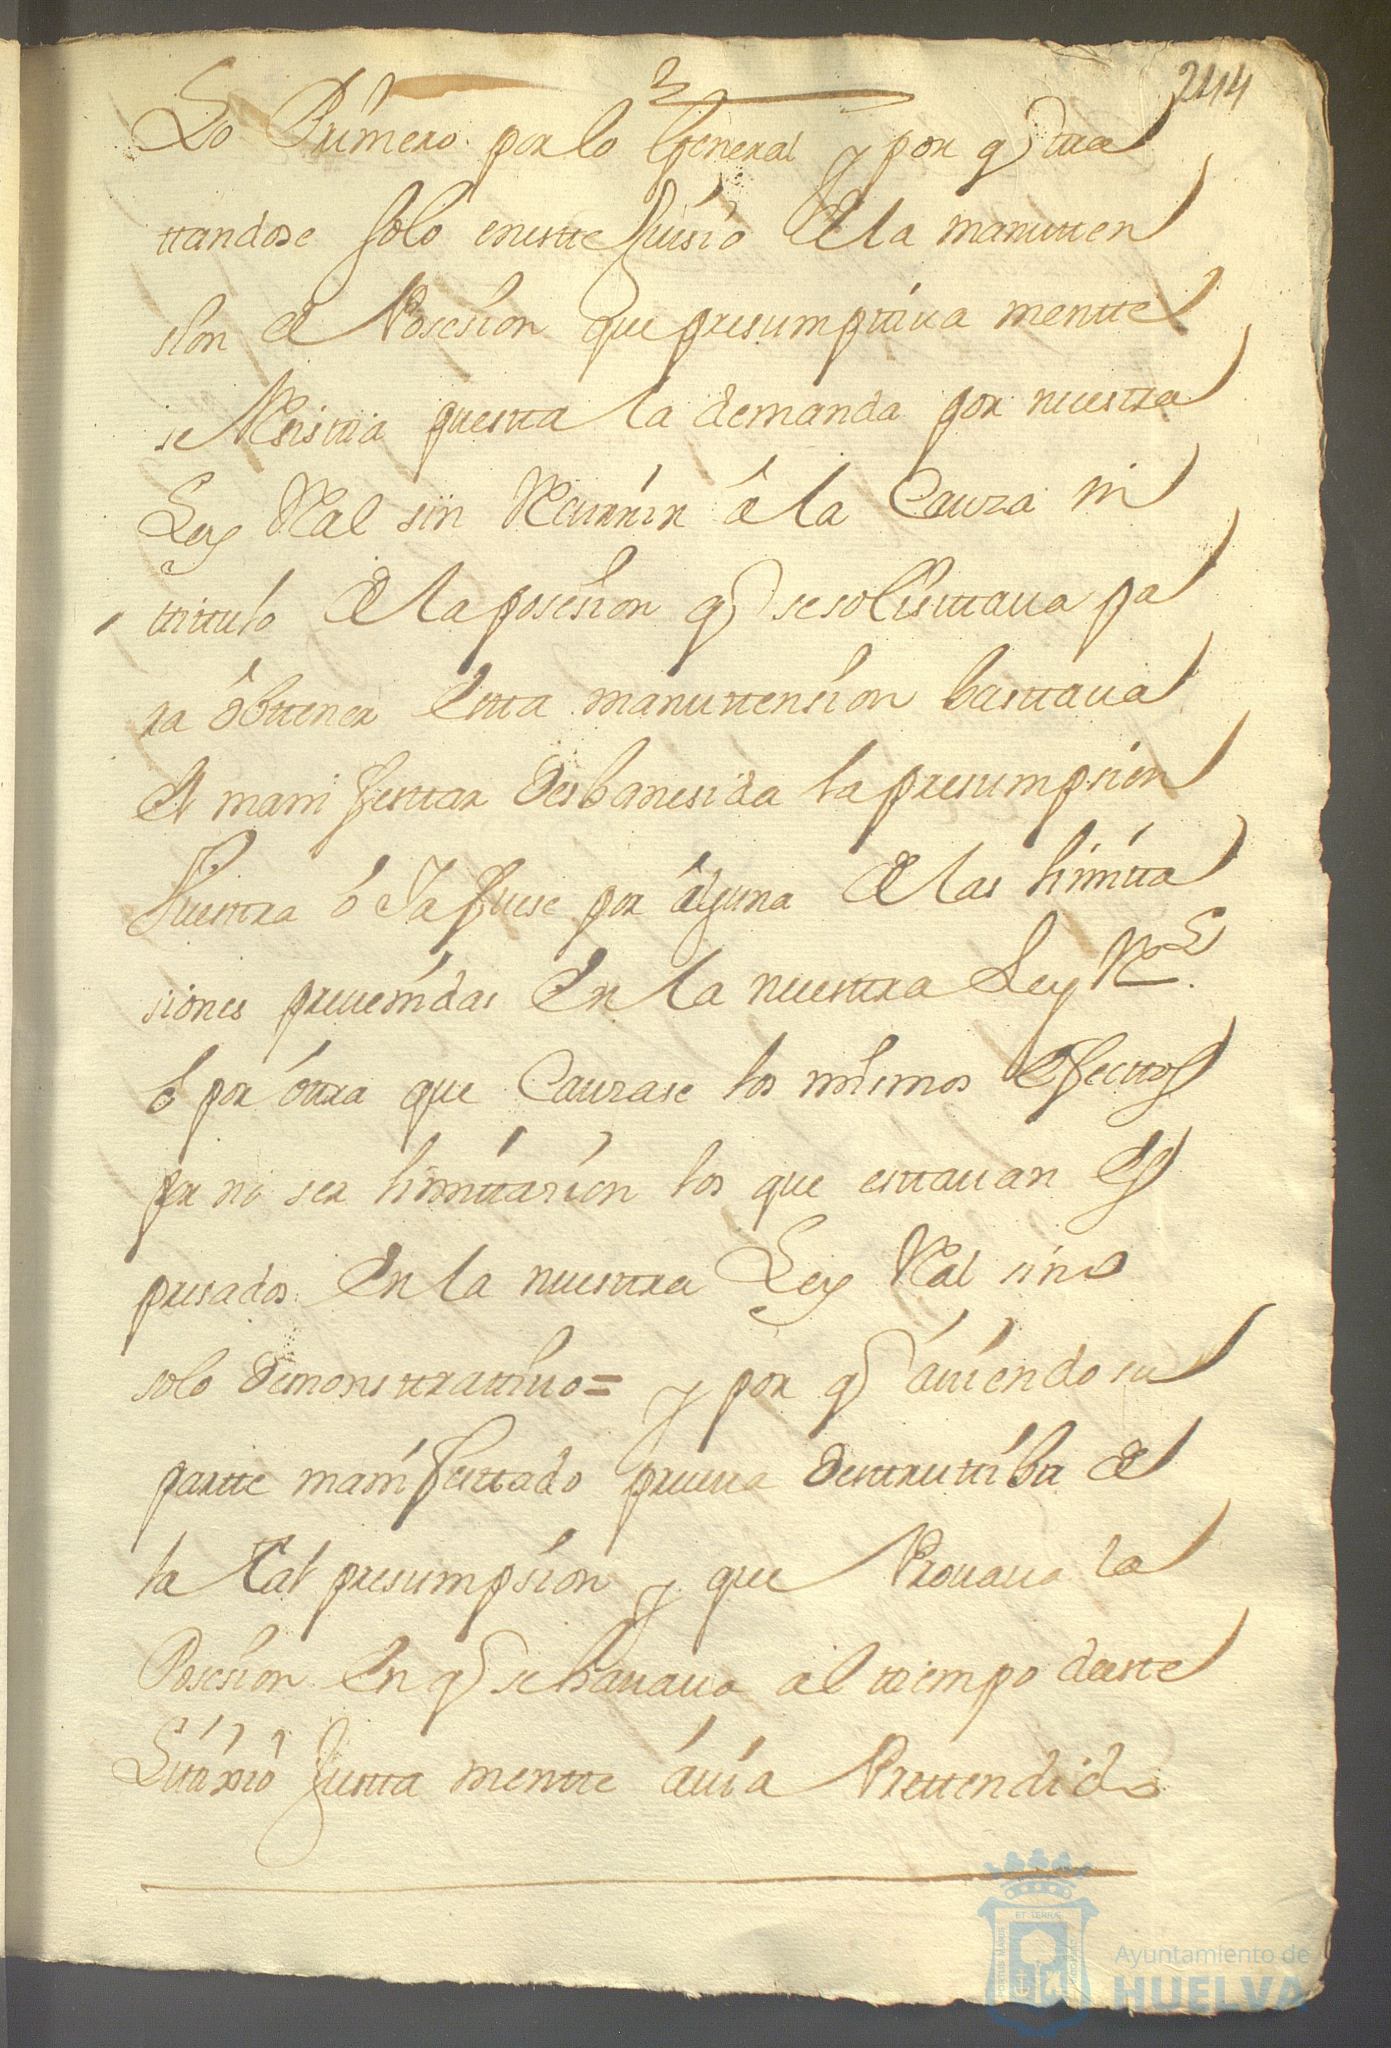 244
Lo Primero por lo General y por q tra
ttandose solo enestte Juisio de la manutten
sion de Posesion que presumptiua mentte
se Resistia puestta la demanda por nuestra
Ley Real sin Recurrir â la Cauza ni
tittulo de la posesion q se solisittaua pa
ra ôbttener estta manuttension basttaua
el mani festtar desbanesida la presumpsion
Nuestra ó Ya fuese por âlguna de las limitta
siones preuenidas en la nuesttra Ley Rl.
ó por óttra que Cauzase los mismos efecttos
por no ser limittasion los que esttauan es
presados en la nuesttra Ley Real sino
solo demonsttrattiuo= y por q áuiendo su
partte mani festtado prueua desttruttiba de
la tal presumpsion y que Prouaua la
Posesion en q se hallaua al tiempo deeste
Littixio Justta mentte áuia Prettendido
Ayuntamiento de
HUELVA